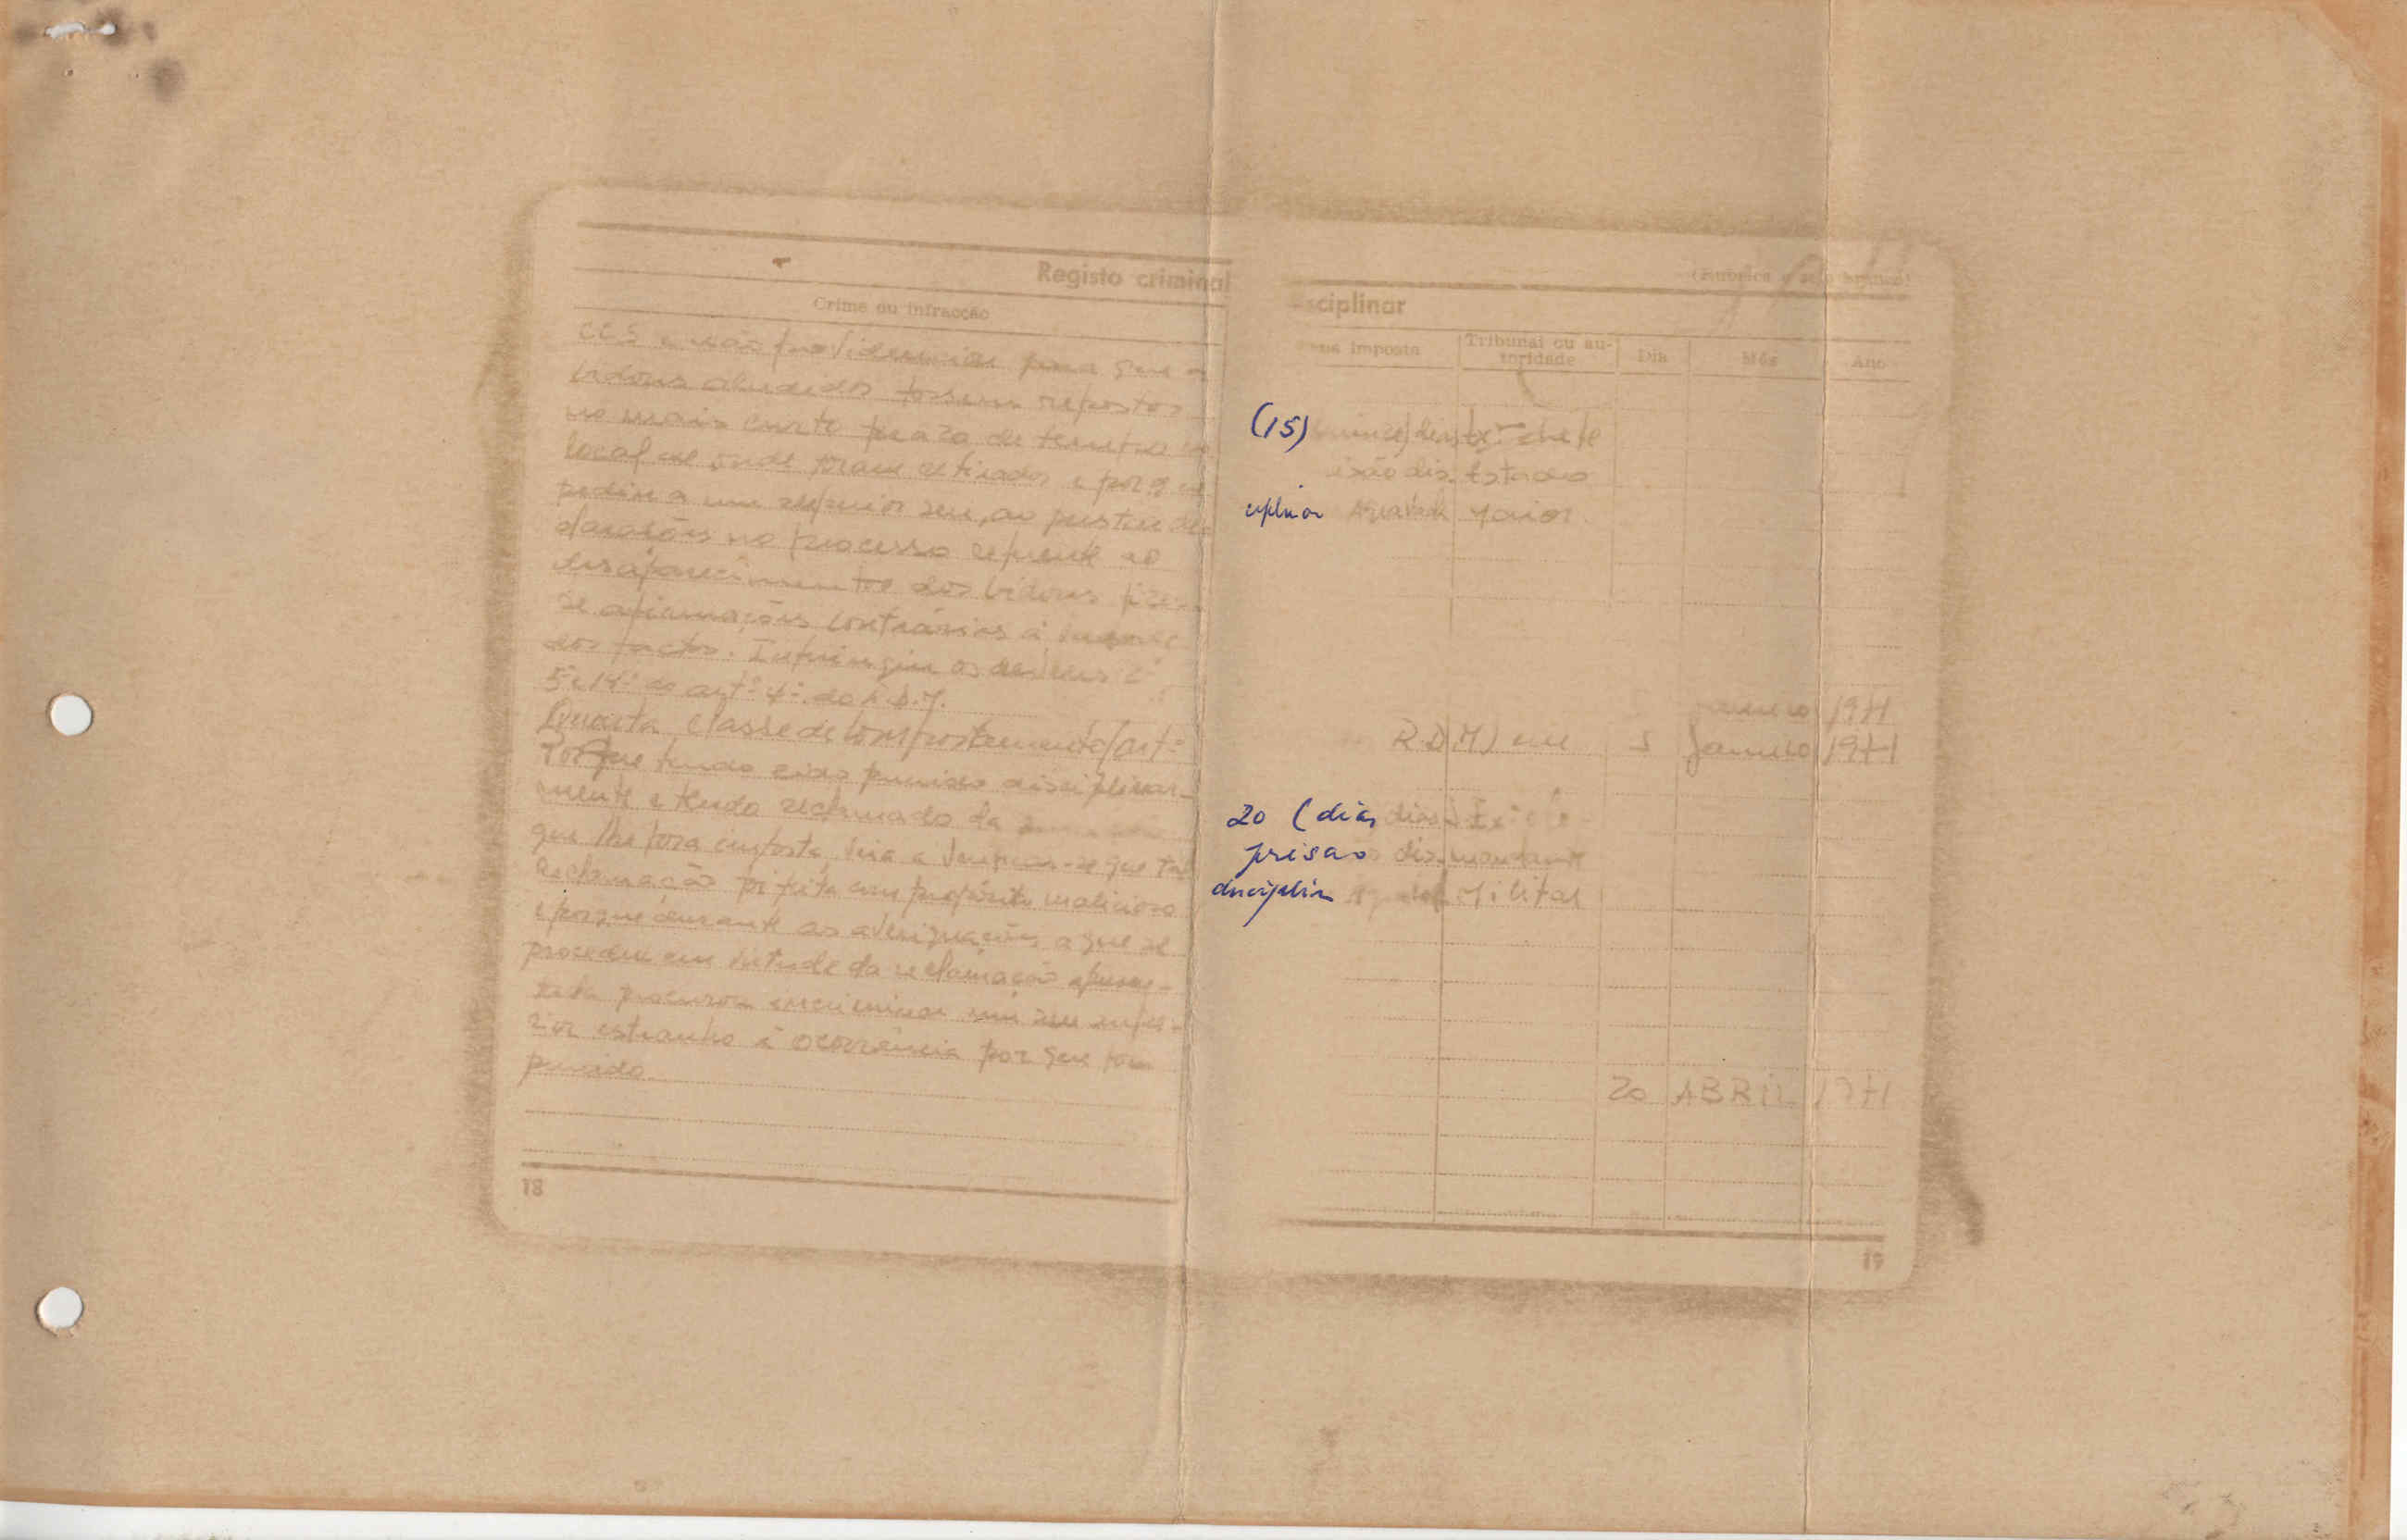 Registo criminal
Crime ou infracção
CCS e não providenciar para que os
bidons aludidos fossem repostos
no mais curto prazo de tempo no
local de onde foram retirados e porque
pediu a um inferior seu, ao prestar de-
clarações no processo referente ao
desaparecimento dos bidons fizes-
se afirmações contrárias à verdade
dos factos. Infringiu os deveres 2º
5º e 14º do artº 4º do R.D.M.
Quarta classe de comportamento (artº
Porque tendo sido punido disciplinar-
mente e tendo reclamado da
que lhe fora imposta, veio a verificar-se que tal
Reclamação foi feita com propósito malicioso
e porque durante as averiguações a que se
procedeu em virtude da reclamação apresen-
tada procurou incriminar um seu infe-
rior estranho à ocorrência por que fora
punido
18
sciplinar
(Rubrica e selo branco)
na imposta
Tribunal ou au-
toridade
Dia
Mês
Ano
(15) quinze) dias Exmº chefe
isão dis. Estado
ciplinar Agravada Maior
Janeiro 1971
R.D.M) em 5 Janeiro 1971
20 (dias dias)
prisao dis.
disciplin Militar
20 ABRIL 1971
19